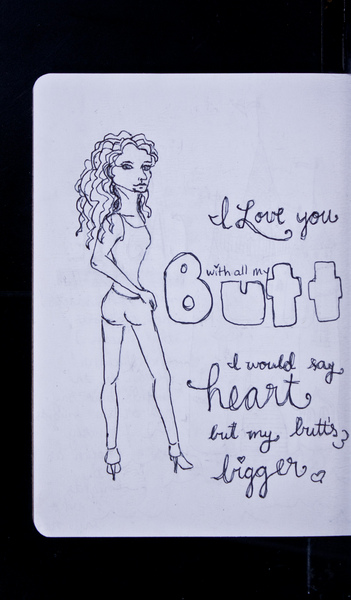 I Love you
with all my
Butt
I would say
heart
but my butt's
bigger